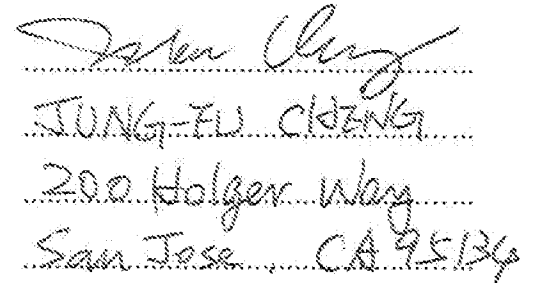 JUNG-FU CHENG
200 Holger Way
San Jose, CA 95134